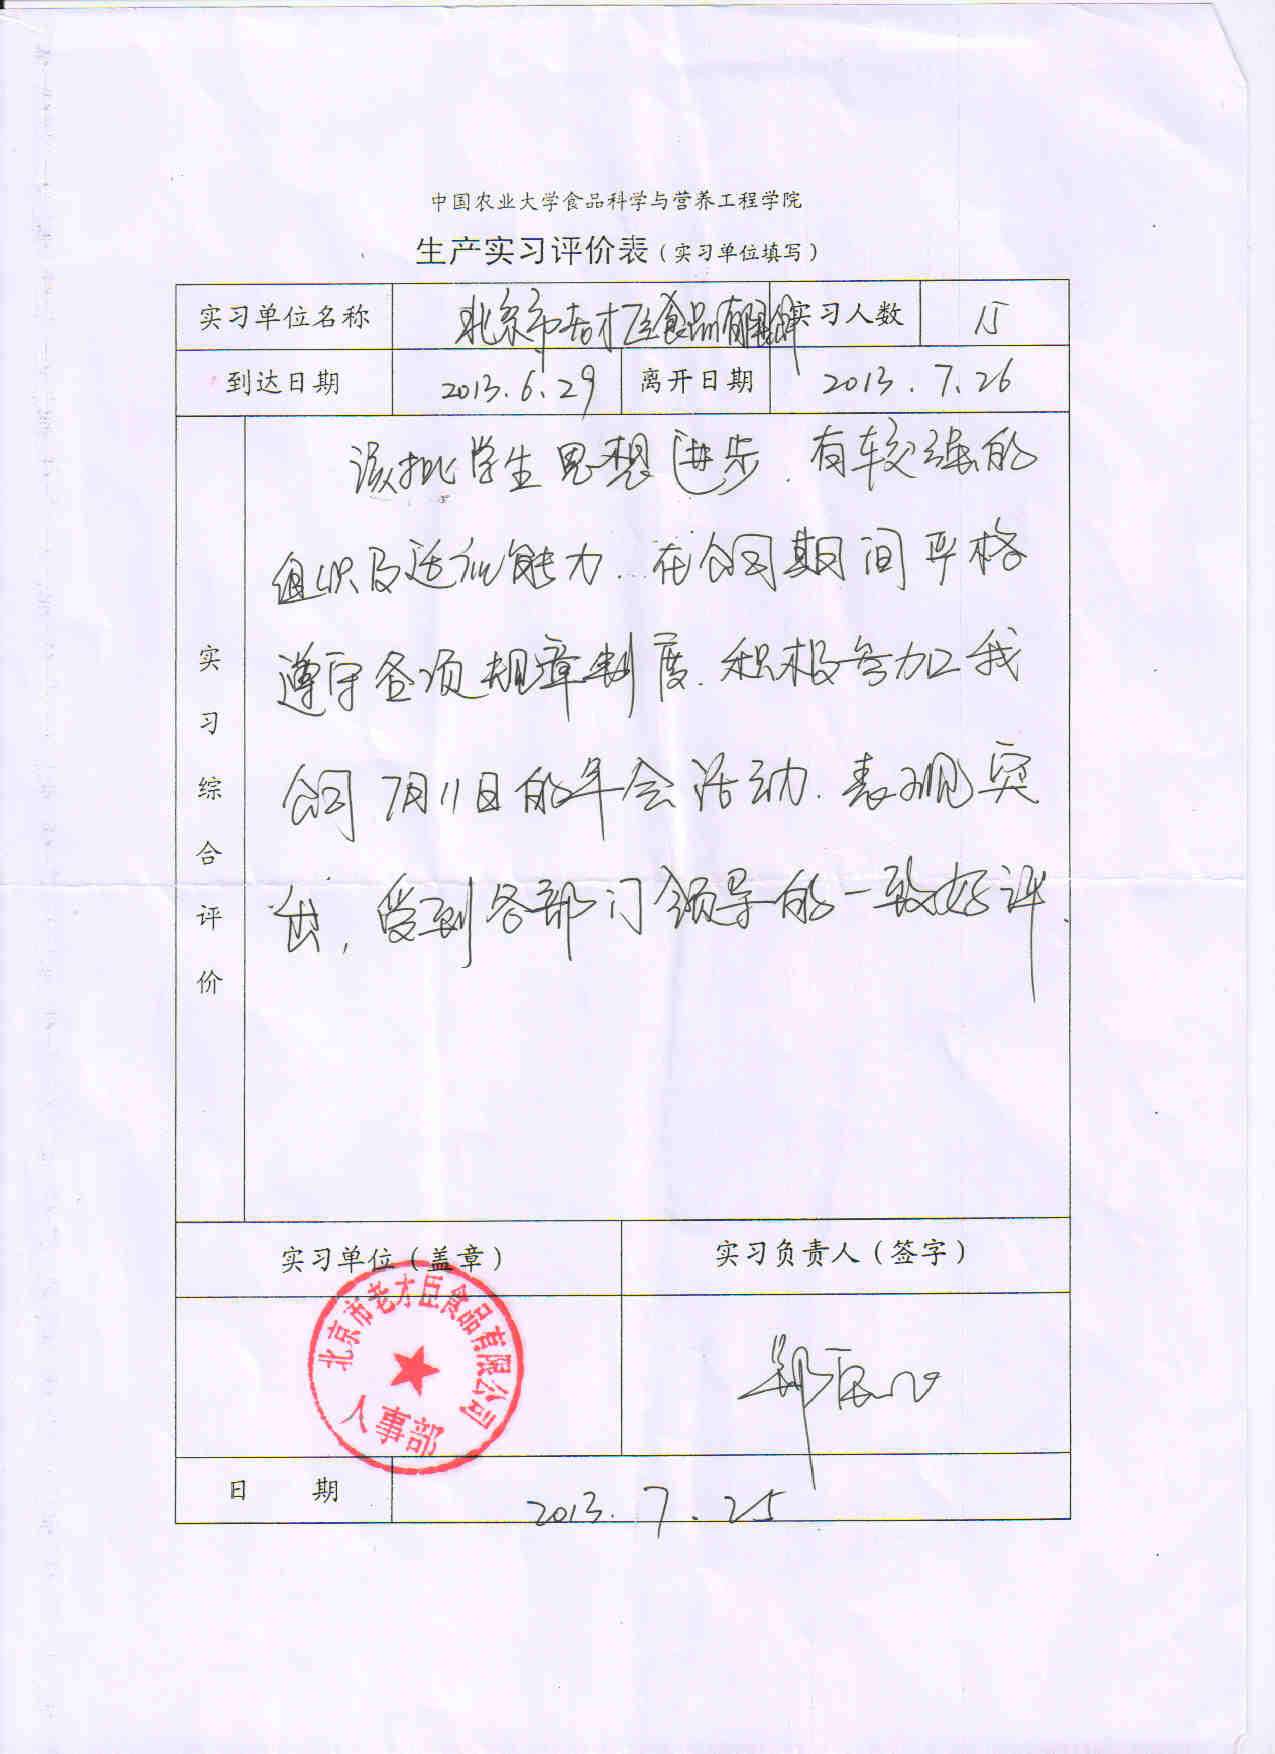 中国农业大学食品科学与营养工程学院
生产实习评价表（实习单位填写）
实习单位名称 北京市老才臣食品有限公司 实习人数 15
到达日期 2013.6.29 离开日期 2013.7.26
实习综合评价
该批学生思想进步.有较强的
组织及适应能力.在公司期间严格
遵守各项规章制度.积极参加我
公司7月11日的年会活动.表现突
出,受到各部门领导的一致好评.
实习单位（盖章） 实习负责人（签字）
北京市老才臣食品有限公司
人事部
日 期 2013.7.25